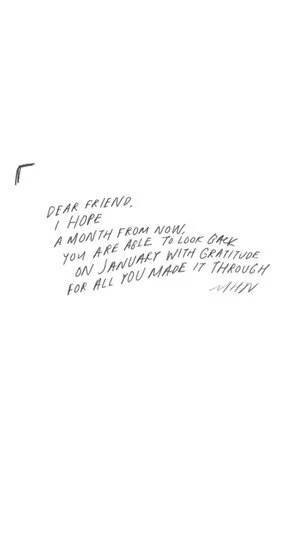 DEAR FRIEND,
I HOPE
A MONTH FROM NOW,
YOU ARE ABLE TO LOOK BACK
ON JANUARY WITH GRATITUDE
FOR ALL YOU MADE IT THROUGH